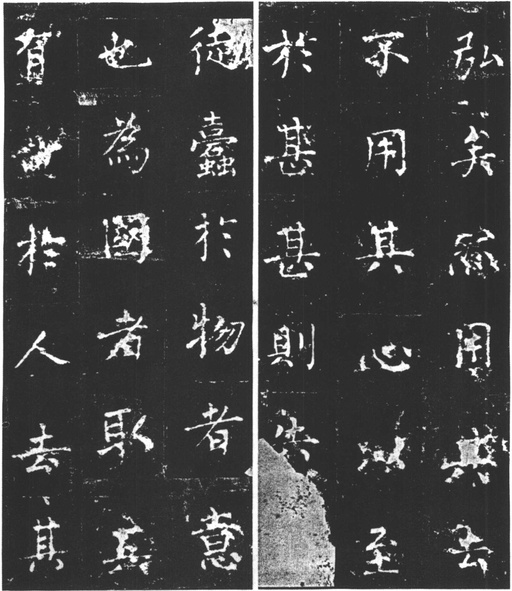 弘矣用其去
不用其心以至
於甚甚則失
徒蠹於物者意
也為國者取其
賢於人去其